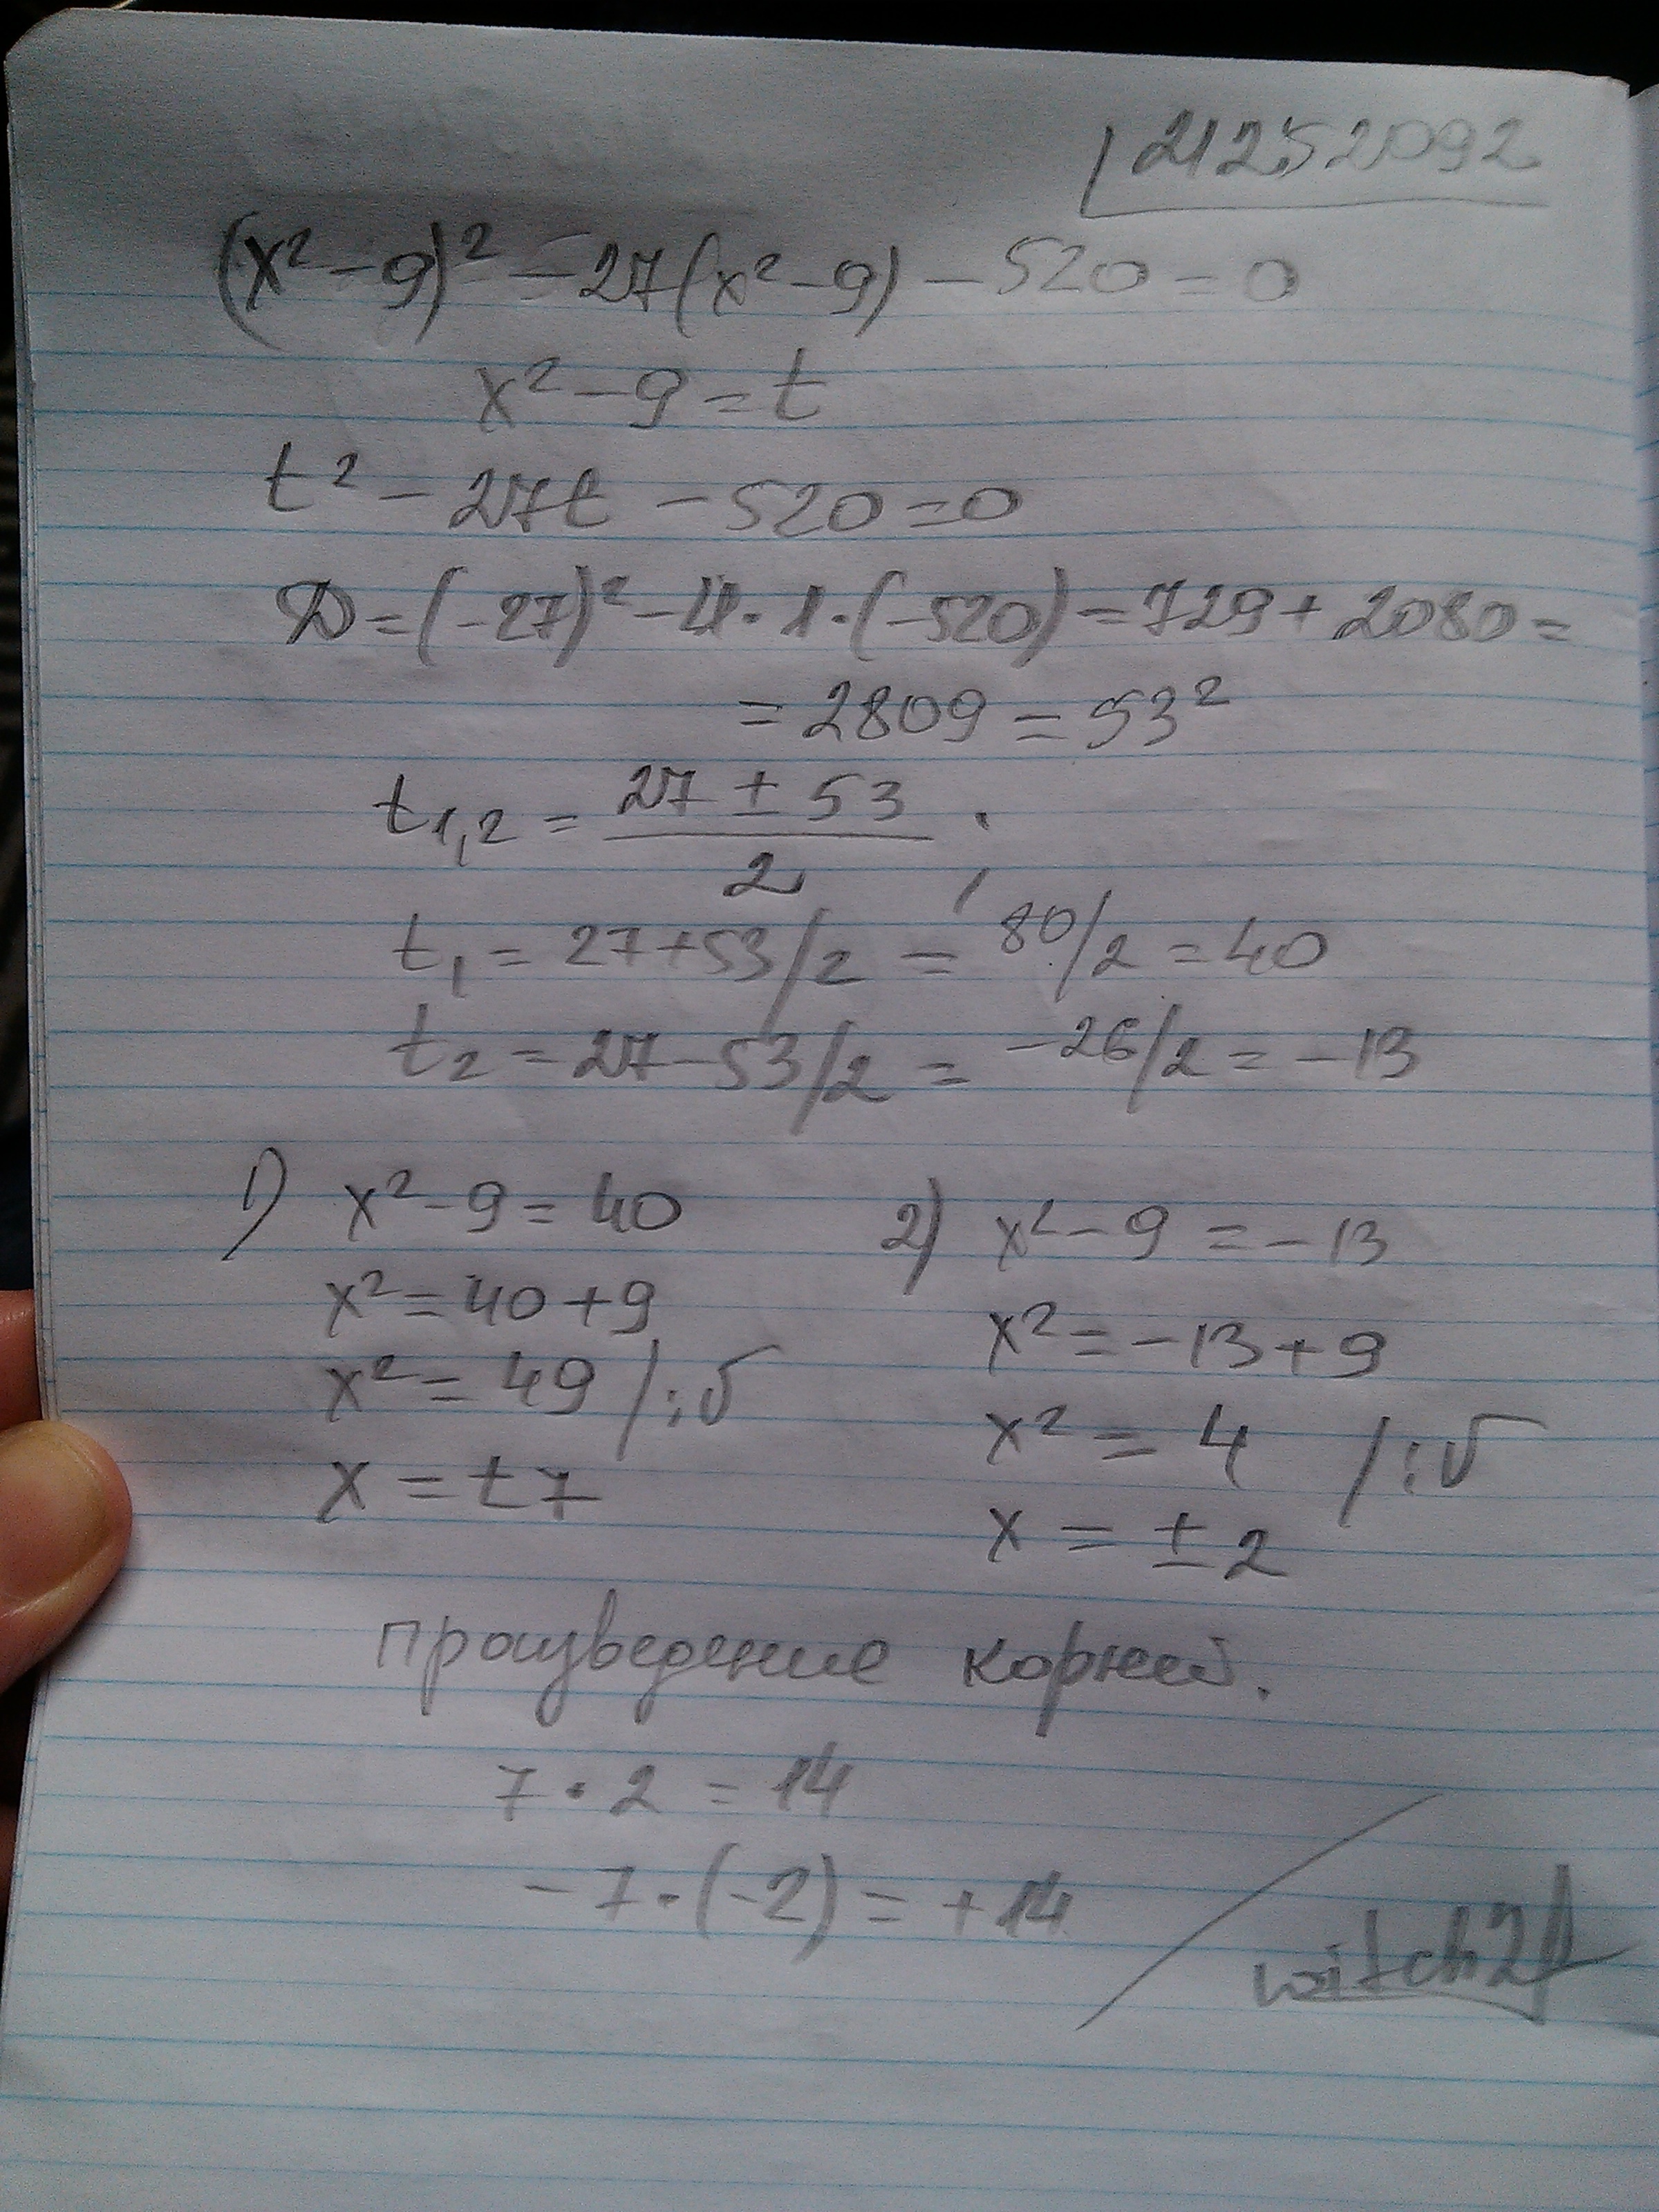 21252092
(x² - 9)² - 27(x² - 9) - 520 = 0
x² - 9 = t
t² - 27t - 520 = 0
D = (-27)² - 4 · 1 · (-520) = 729 + 2080 =
= 2809 = 53²
t₁,₂ = (27 ± 53)/2 ;
t₁ = 27+53/2 = 80/2 = 40
t₂ = 27-53/2 = -26/2 = -13
1) x² - 9 = 40
x² = 40 + 9
x² = 49 /:√
x = ±7
2) x² - 9 = -13
x² = -13 + 9
x² = 4 /:√
x = ±2
произведение корней.
7 · 2 = 14
-7 · (-2) = +14
witch21